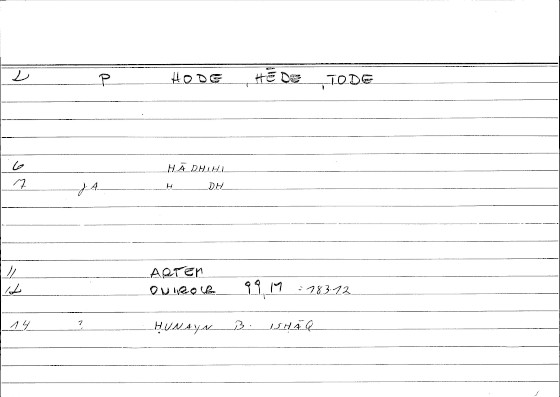 L P HODE , HĒDE , TODE
6 HĀDHIHI
7 JA H DH
11 ARTEM
12 99,17 : 18312
14 ? ḤUNAYN B. ISHĀQ